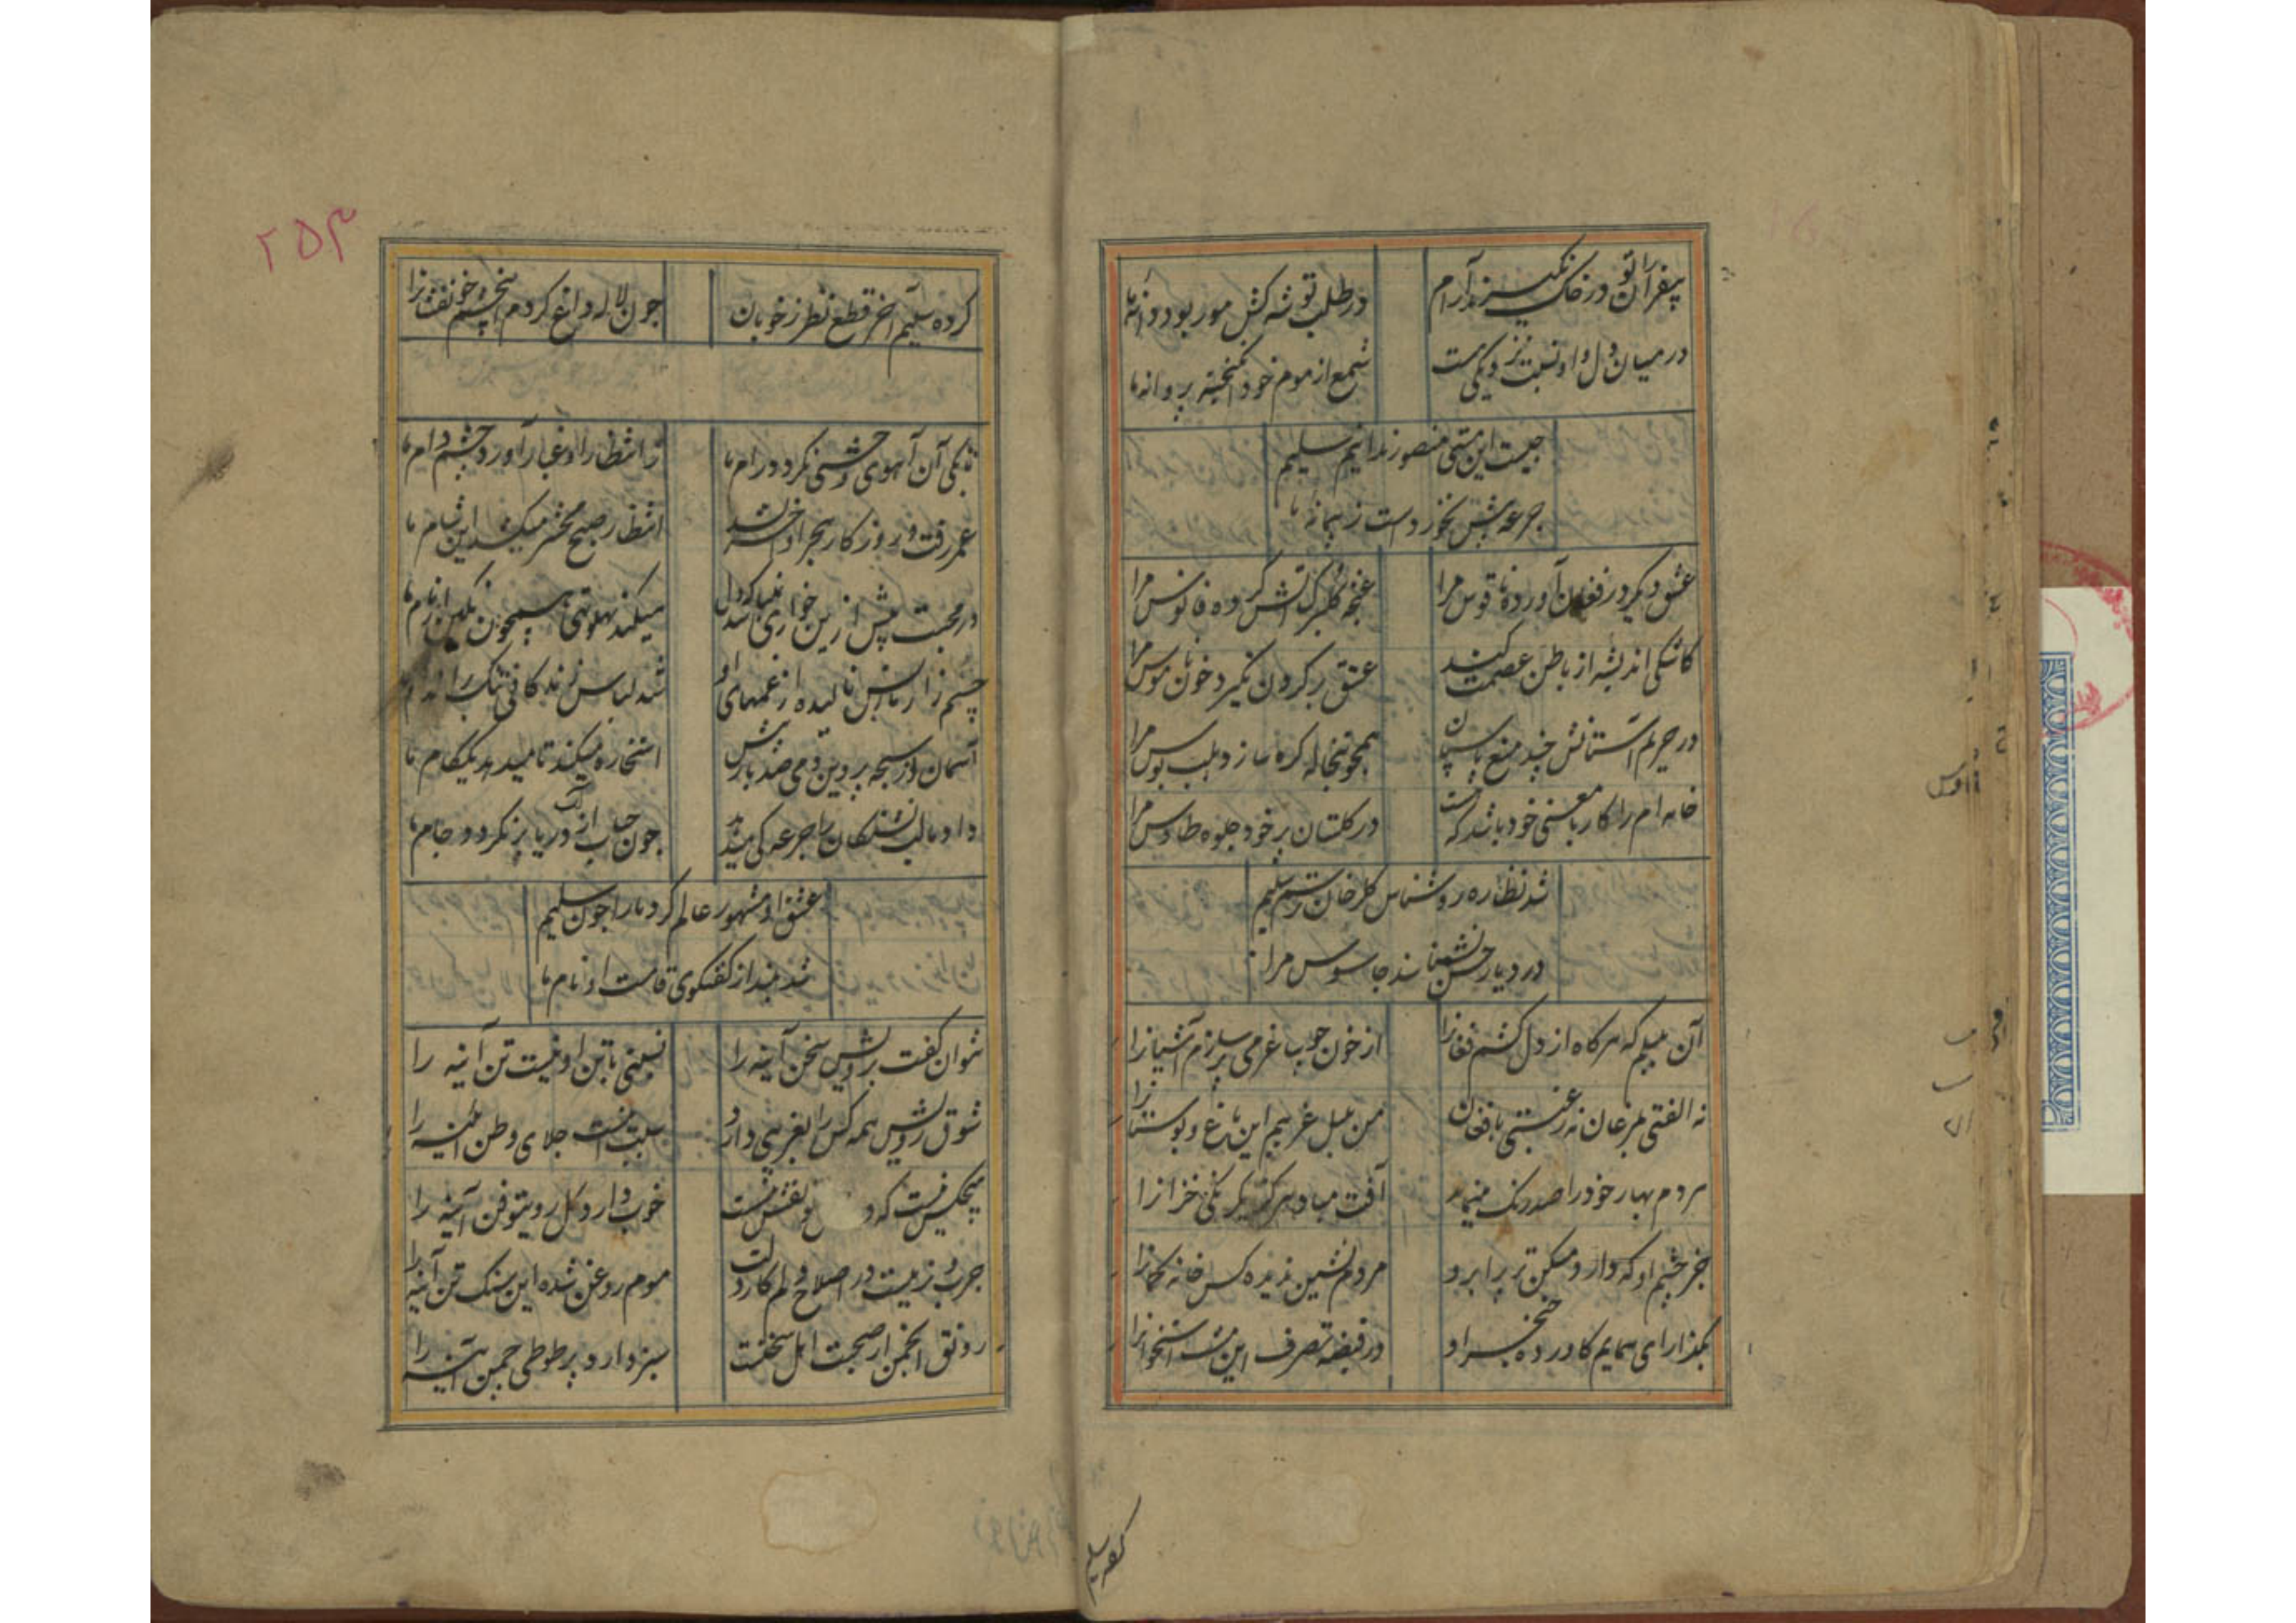 بیقرار تو در خاک نگیرند آرام
در طلب توشه کش مور بود دانه ما
در میان دل و او نسبت نزدیکی هست
شمع از موم خود انگیخته پروانه ما
چیست این مستی منصور ندانیم سلیم
جرعه بیش نخوردست ز پیمانه ما
عشق دیگر در فغان آورده ناقوس مرا
غنچه گلبرگ آتش کرده فانوس مرا
کاشکی اندیشه از باطن عصمت کند
عشق بر گردن نگیرد خون ناموس مرا
در حریم آستانش چند منع پاسبان
همچو تبخاله گره سازد بلب بوس مرا
خانه ام را کار با معنی خود باشد که هست
در گلستان بر خود جلوه طاوس مرا
شد نظاره روشناس گلرخان ترسم سلیم
در دیار حسن بشناسند جاسوس مرا
آن بلبلم که هرگاه از دل کشم فغانرا
از خون چو باغرمی ریزم آشیانرا
نه الفتی بمرغان نه رغبتی بافغان
من بلبل غریبم این باغ و بوستانرا
مردم بهار خود را صد رنگ می‌نماید
آفت مباد هرگز یکرنگی خزانرا
جز چشم او که دارد مسکن بزیر ابرو
مردم نشین ندیده کس خانه کمانرا
بگذار ای همایم کاورده خنجر او
در قبضه تصرف این مشت استخوانرا
گفته سلیم
۲۵۳
کرده سلیم آخر قطع نظر ز خوبان
چون لاله داغ کردم چشم خونفشانرا
تا بکی آن آهوی وحشی نگردد رام ما
ز انتظار او غبار آورد چشم دام ما
عمر رفت و روز کار هجر او آخر نشد
انتظار صبح محشر میکشد این شام ما
در محبت بیش ازین خواری نمیباشد که دل
میکند پهلو تهی همچون نگین از نام ما
چشم زارش نالیده از غمهای او
شد لباس زندگانی تنگ بر اندام ما
آسمان از سبحه پروین دمی صد بارش
استخاره میکند تا میدهد یک کام ما
داد ما لب تشنگان را جرعه کی میدهد
چون حباب از آب دریا پر نگردد جام ما
عشق او مشهور عالم کرد ما را چون سلیم
شد بلند از گفتگوی قامت او نام ما
نتوان گفت برویش سخن آینه را
نسبتی با تن او نیست تن آینه را
شوق رویش همه کس را بغریبی دارد
سبب اینست جلای وطن آینه را
هیچکس نیست که در نقش نیست
خوب دارد گل روی تو فن آینه را
چرب و نرمیست در اصلاح دلم کار دلت
موم روغن شده این سنگ تن آینه را
رونق انجمن از صحبت اهل سخنست
سبز دارد پر طوطی چمن آینه را